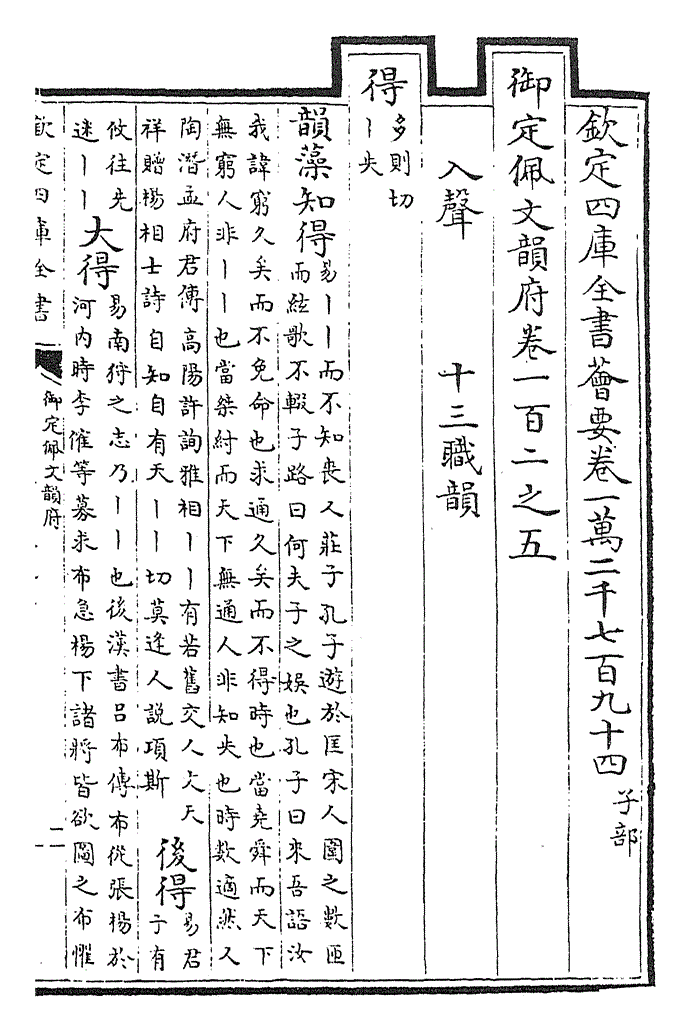 欽定四庫全書薈要卷一萬二千七百九十四 子部
御定佩文韻府卷一百二之五
入聲 十三職韻
得 多則切
丨失
韻藻知得 易丨丨而不知喪又莊子孔子遊於匡宋人圍之數匝
而絃歌不輟子路曰何夫子之娛也孔子曰來吾語汝
我諱窮久矣而不免命也求通久矣而不得時也當堯舜而天下
無窮人非丨丨也當桀紂而天下無通人非知失也時數適然又
陶潛孟府君傳高陽許詢雅相丨丨有若舊交又文天
祥贈楊相士詩自知自有天丨丨切莫逢人說項斯
後得 易君
子有
攸往先
迷丨丨
大得 易南狩之志乃丨丨也後漢書呂布傳布從張楊於
河内時李傕等募求布急楊下諸將皆欲圖之布懼
欽定四庫全書 御定佩文韻府